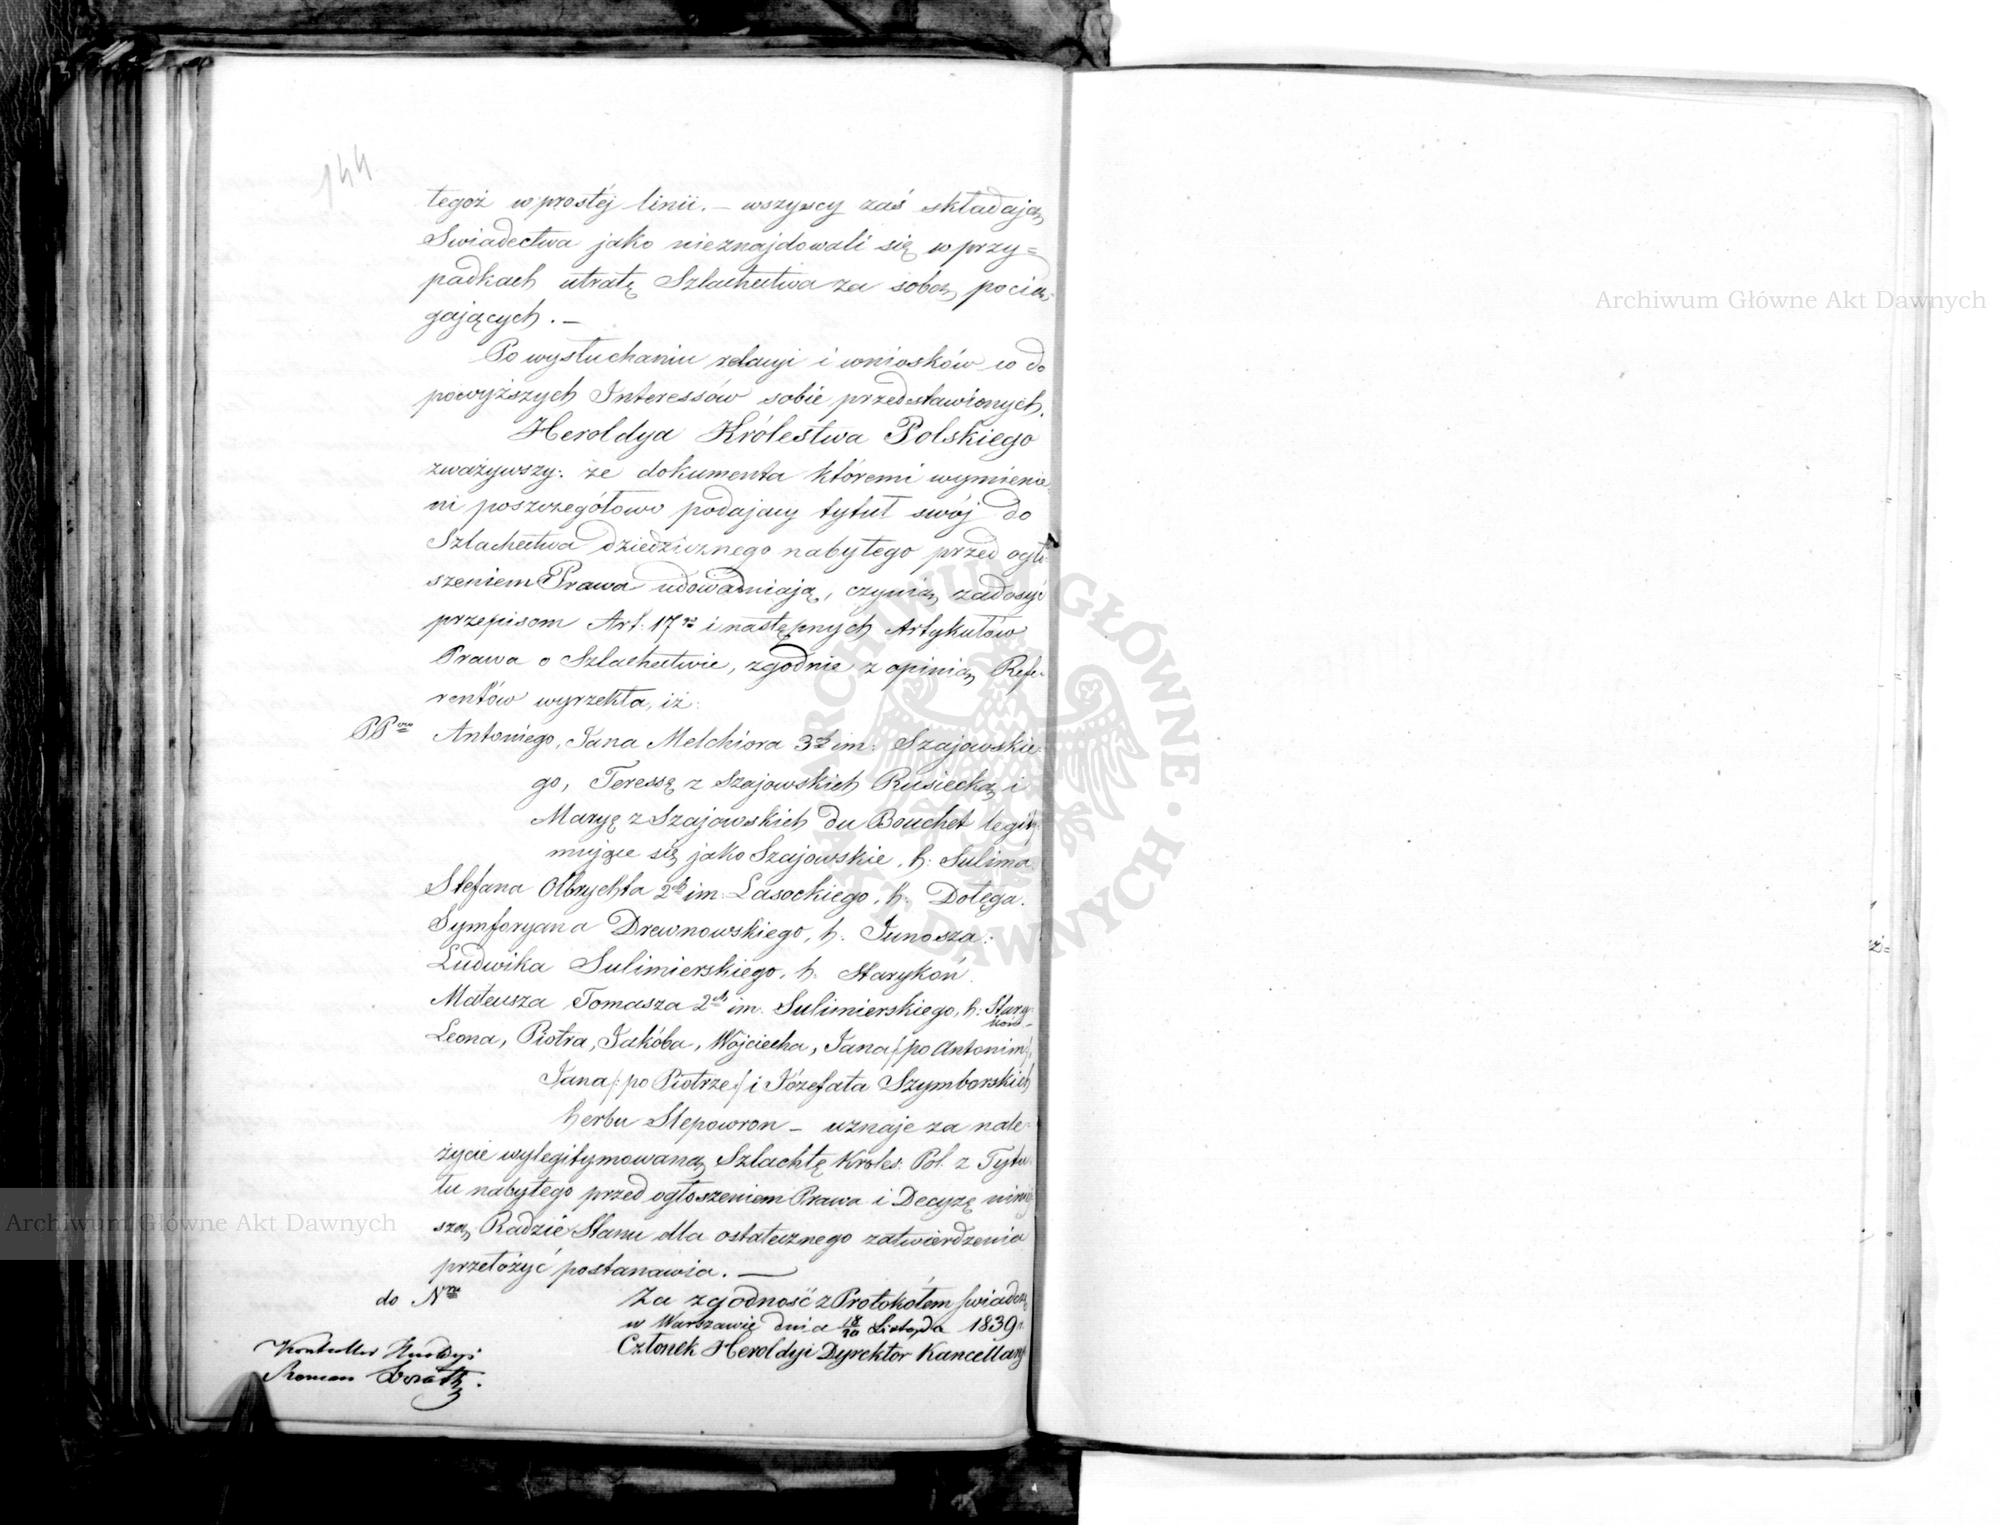 144
tegoż w prostéj linii. — wszyscy zaś składają
Swiadectwa jako nieznajdowali się w przy=
padkach utratę Szlachectwa za sobą pocią=
gających. —
Po wysłuchaniu relacyi i wniosków co do
powyższych Interessów sobie przedstawionych.
Heroldya Królestwa Polskiego
zważywszy: że dokumenta któremi wymienie=
ni poszczegółowo podający tytuł swój do
Szlachectwa dziedzicznego nabytego przed ogło=
szeniem Prawa udowadniają, czynią zadosyć
przepisom Art. 17go i następnych Artykułów
Prawa o Szlachectwie, zgodnie z opinią Refe=
rentów wyrzekła, iż:
PPów Antoniego, Jana Melchiora 3ch im: Szajowskie=
go, Teressę z Szajowskich Rusiecką i
Maryę z Szajowskich du Bouchet legity=
mujące się jako Szajowskie, h: Sulima.
Stefana Olbrychta 2ch im: Lasockiego, h: Dołęga.
Symforyana Drewnowskiego, h. Junosza:
Ludwika Sulimierskiego, h. Starykoń.
Mateusza Tomasza 2ch im. Sulimierskiego, h: Stary=
koń
Leona, Piotra, Jakóba, Wojciecha, Jana /:po Antonim:/,
Jana /:po Piotrze:/ i Józefata Szymborskich
herbu Slepowron — uznaje za nale=
życie wylegitymowaną Szlachtę Króles: Pol: z Tytu=
łu nabytego przed ogłoszeniem Prawa i Decyzę niniej=
szą Radzie Stanu dla ostatecznego zatwierdzenia
przełożyć postanawia. —
do Nru
Za zgodność z Protokółem świadczę
w Warszawie dnia 18/30 Listopada 1839 r.
Członek Heroldyi Dyrektor Kancellaryi
Kontroller Heroldyi
Roman
Archiwum Główne Akt Dawnych
Archiwum Główne Akt Dawnych
ARCHIWUM GŁÓWNE AKT DAWNYCH